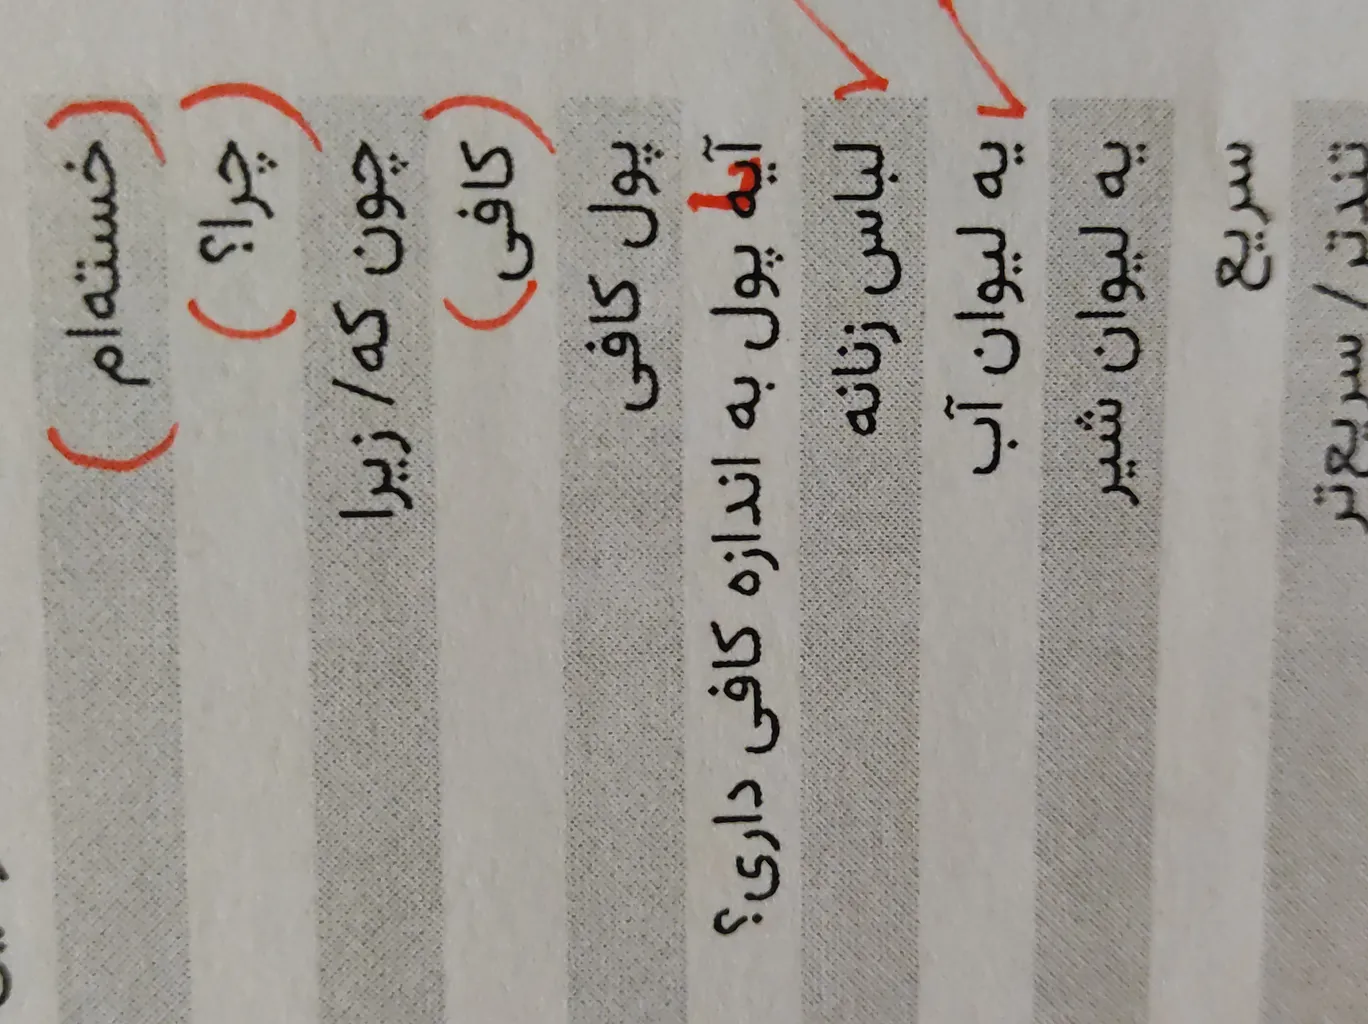 خسته‌ام
چرا؟
چون که/ زیرا
کافی
پول کافی
آیا پول به اندازه کافی داری؟
لباس زنانه
یه لیوان آب
یه لیوان شیر
سریع
تندتر/ سریع‌تر